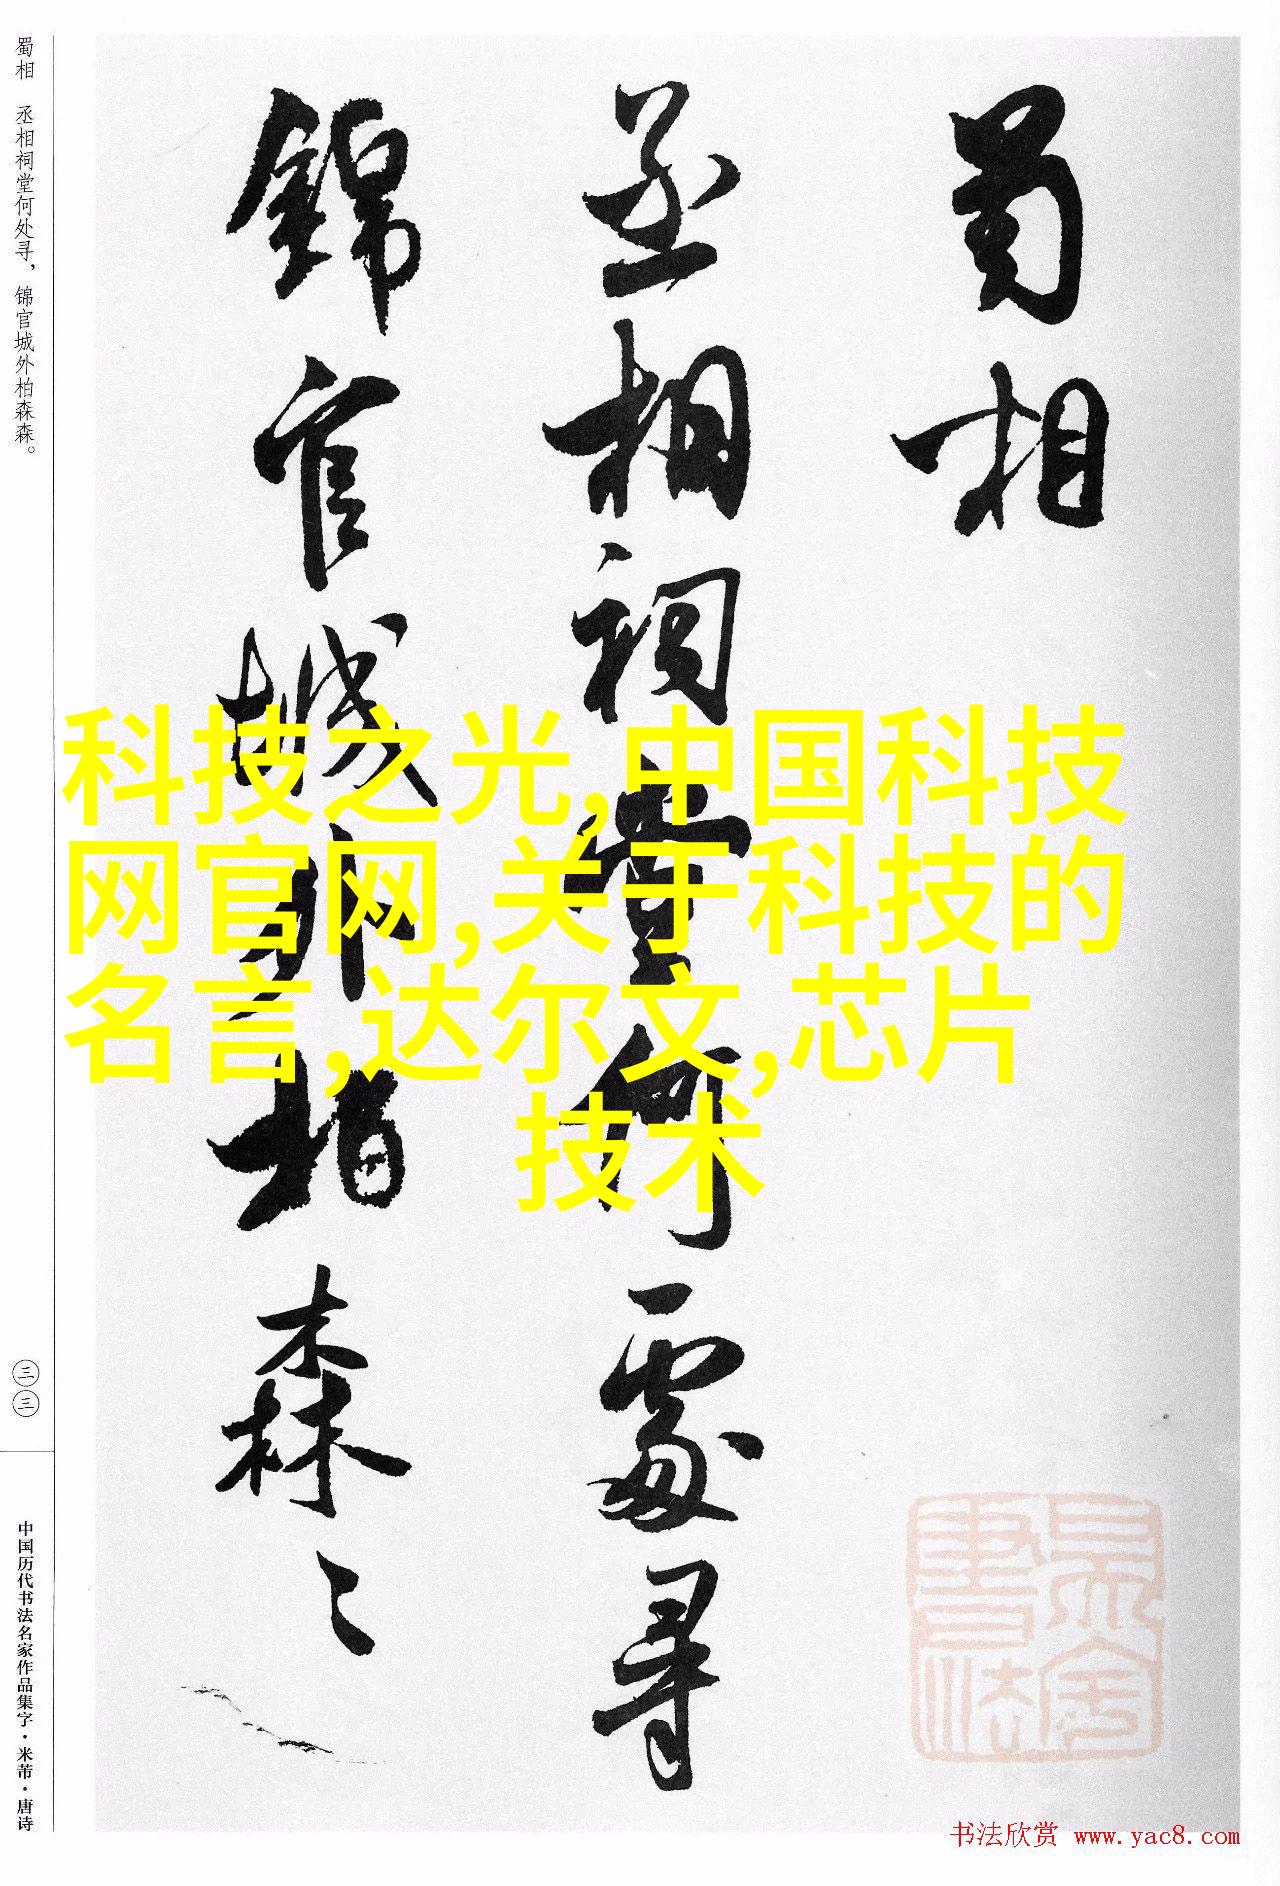 蜀相
丞相祠堂何處尋
錦官城外柏森〻
科技之光,中国科技
网官网,关于科技的
名言,达尔文,芯片
技术
蜀相 丞相祠堂何处寻，锦官城外柏森森。
三三
中国历代书法名家作品集字·米芾·唐诗
书法欣赏 www.yac8.com